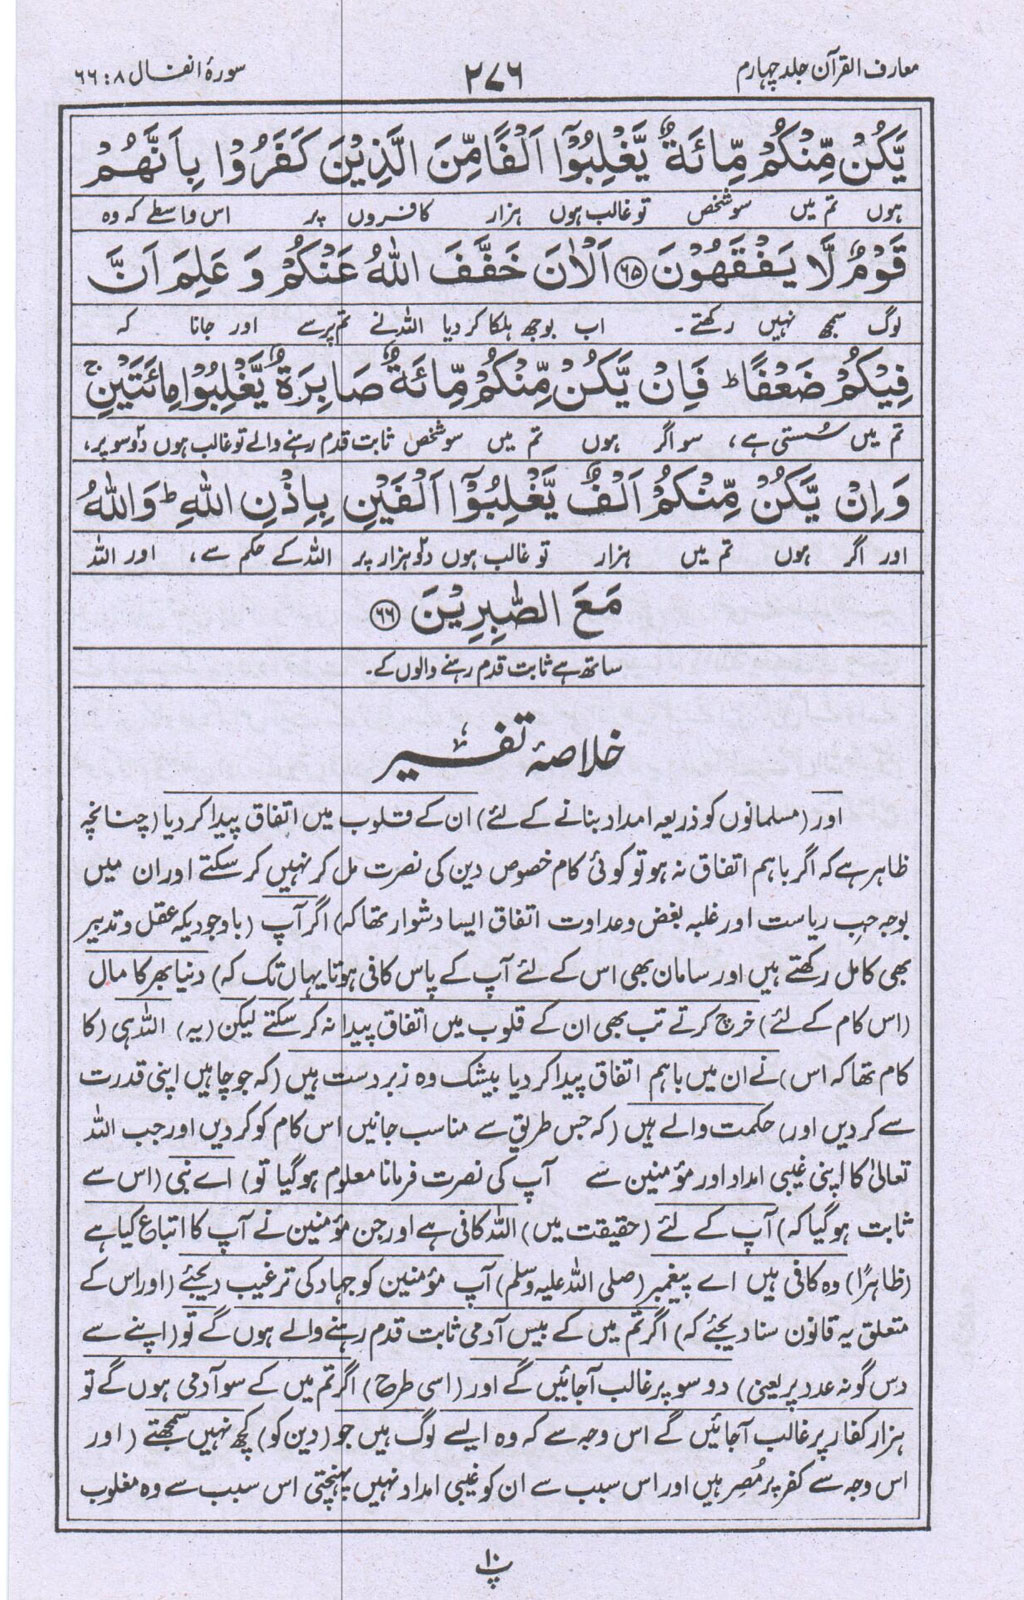 معارف القرآن جلد چہارم
۲۷۶
سورۂ انفال ۸ : ۶۶
يَّكُنْ مِّنْكُمْ مِّائَةٌ يَّغْلِبُوْٓا اَلْفًا مِّنَ الَّذِيْنَ كَفَرُوْا بِاَنَّهُمْ
ہوں تم میں سو شخص تو غالب ہوں ہزار کافروں پر اس واسطے کہ وہ
قَوْمٌ لَّا يَفْقَهُوْنَ ﴿۶۵﴾ اَلْـٰٔنَ خَفَّفَ اللهُ عَنْكُمْ وَ عَلِمَ اَنَّ
لوگ سمجھ نہیں رکھتے۔ اب بوجھ ہلکا کر دیا اللہ نے تم پر سے اور جانا کہ
فِيْكُمْ ضَعْفًا ؕ فَاِنْ يَّكُنْ مِّنْكُمْ مِّائَةٌ صَابِرَةٌ يَّغْلِبُوْا مِائَتَيْنِ ۚ
تم میں سستی ہے، سو اگر ہوں تم میں سو شخص ثابت قدم رہنے والے تو غالب ہوں دو سو پر،
وَاِنْ يَّكُنْ مِّنْكُمْ اَلْفٌ يَّغْلِبُوْٓا اَلْفَيْنِ بِاِذْنِ اللهِ ؕ وَاللهُ
اور اگر ہوں تم میں ہزار تو غالب ہوں دو ہزار پر اللہ کے حکم سے، اور اللہ
مَعَ الصّٰبِرِيْنَ ﴿۶۶﴾
ساتھ ہے ثابت قدم رہنے والوں کے۔
خلاصۂ تفسیر
اور (مسلمانوں کو ذریعہ امداد بنانے کے لئے) ان کے قلوب میں اتفاق پیدا کر دیا (چنانچہ
ظاہر ہے کہ اگر باہم اتفاق نہ ہو تو کوئی کام خصوص دین کی نصرت مل کر نہیں کر سکتے اور ان میں
بوجہ حبِ ریاست اور غلبہ بغض و عداوت اتفاق ایسا دشوار تھا کہ) اگر آپ (باوجودیکہ عقل و تدبیر
بھی کامل رکھتے ہیں اور سامان بھی اس کے لئے آپ کے پاس کافی ہوتا یہاں تک کہ) دنیا بھر کا مال
(اس کام کے لئے) خرچ کرتے تب بھی ان کے قلوب میں اتفاق پیدا نہ کر سکتے لیکن (یہ) اللہ ہی (کا
کام تھا کہ اس) نے ان میں باہم اتفاق پیدا کر دیا بیشک وہ زبردست ہیں (کہ جو چاہیں اپنی قدرت
سے کر دیں اور) حکمت والے ہیں (کہ جس طریق سے مناسب جانیں اس کام کو کر دیں اور جب اللہ
تعالیٰ کا اپنی غیبی امداد اور مؤمنین سے آپ کی نصرت فرمانا معلوم ہو گیا تو) اے نبی (اس سے
ثابت ہو گیا کہ) آپ کے لئے (حقیقت میں) اللہ کافی ہے اور جن مؤمنین نے آپ کا اتباع کیا ہے
(ظاہرًا) وہ کافی ہیں اے پیغمبر (صلی اللہ علیہ وسلم) آپ مؤمنین کو جہاد کی ترغیب دیجئے (اور اس کے
متعلق یہ قانون سنا دیجئے کہ) اگر تم میں کے بیس آدمی ثابت قدم رہنے والے ہوں گے تو (اپنے سے
دس گونہ عدد پر یعنی) دو سو پر غالب آجائیں گے اور (اسی طرح) اگر تم میں کے سو آدمی ہوں گے تو
ہزار کفار پر غالب آجائیں گے اس وجہ سے کہ وہ ایسے لوگ ہیں جو (دین کو) کچھ نہیں سمجھتے (اور
اس وجہ سے کفر پر مُصِر ہیں اور اس سبب سے ان کو غیبی امداد نہیں پہنچتی اس سبب سے وہ مغلوب
پ ۱۰